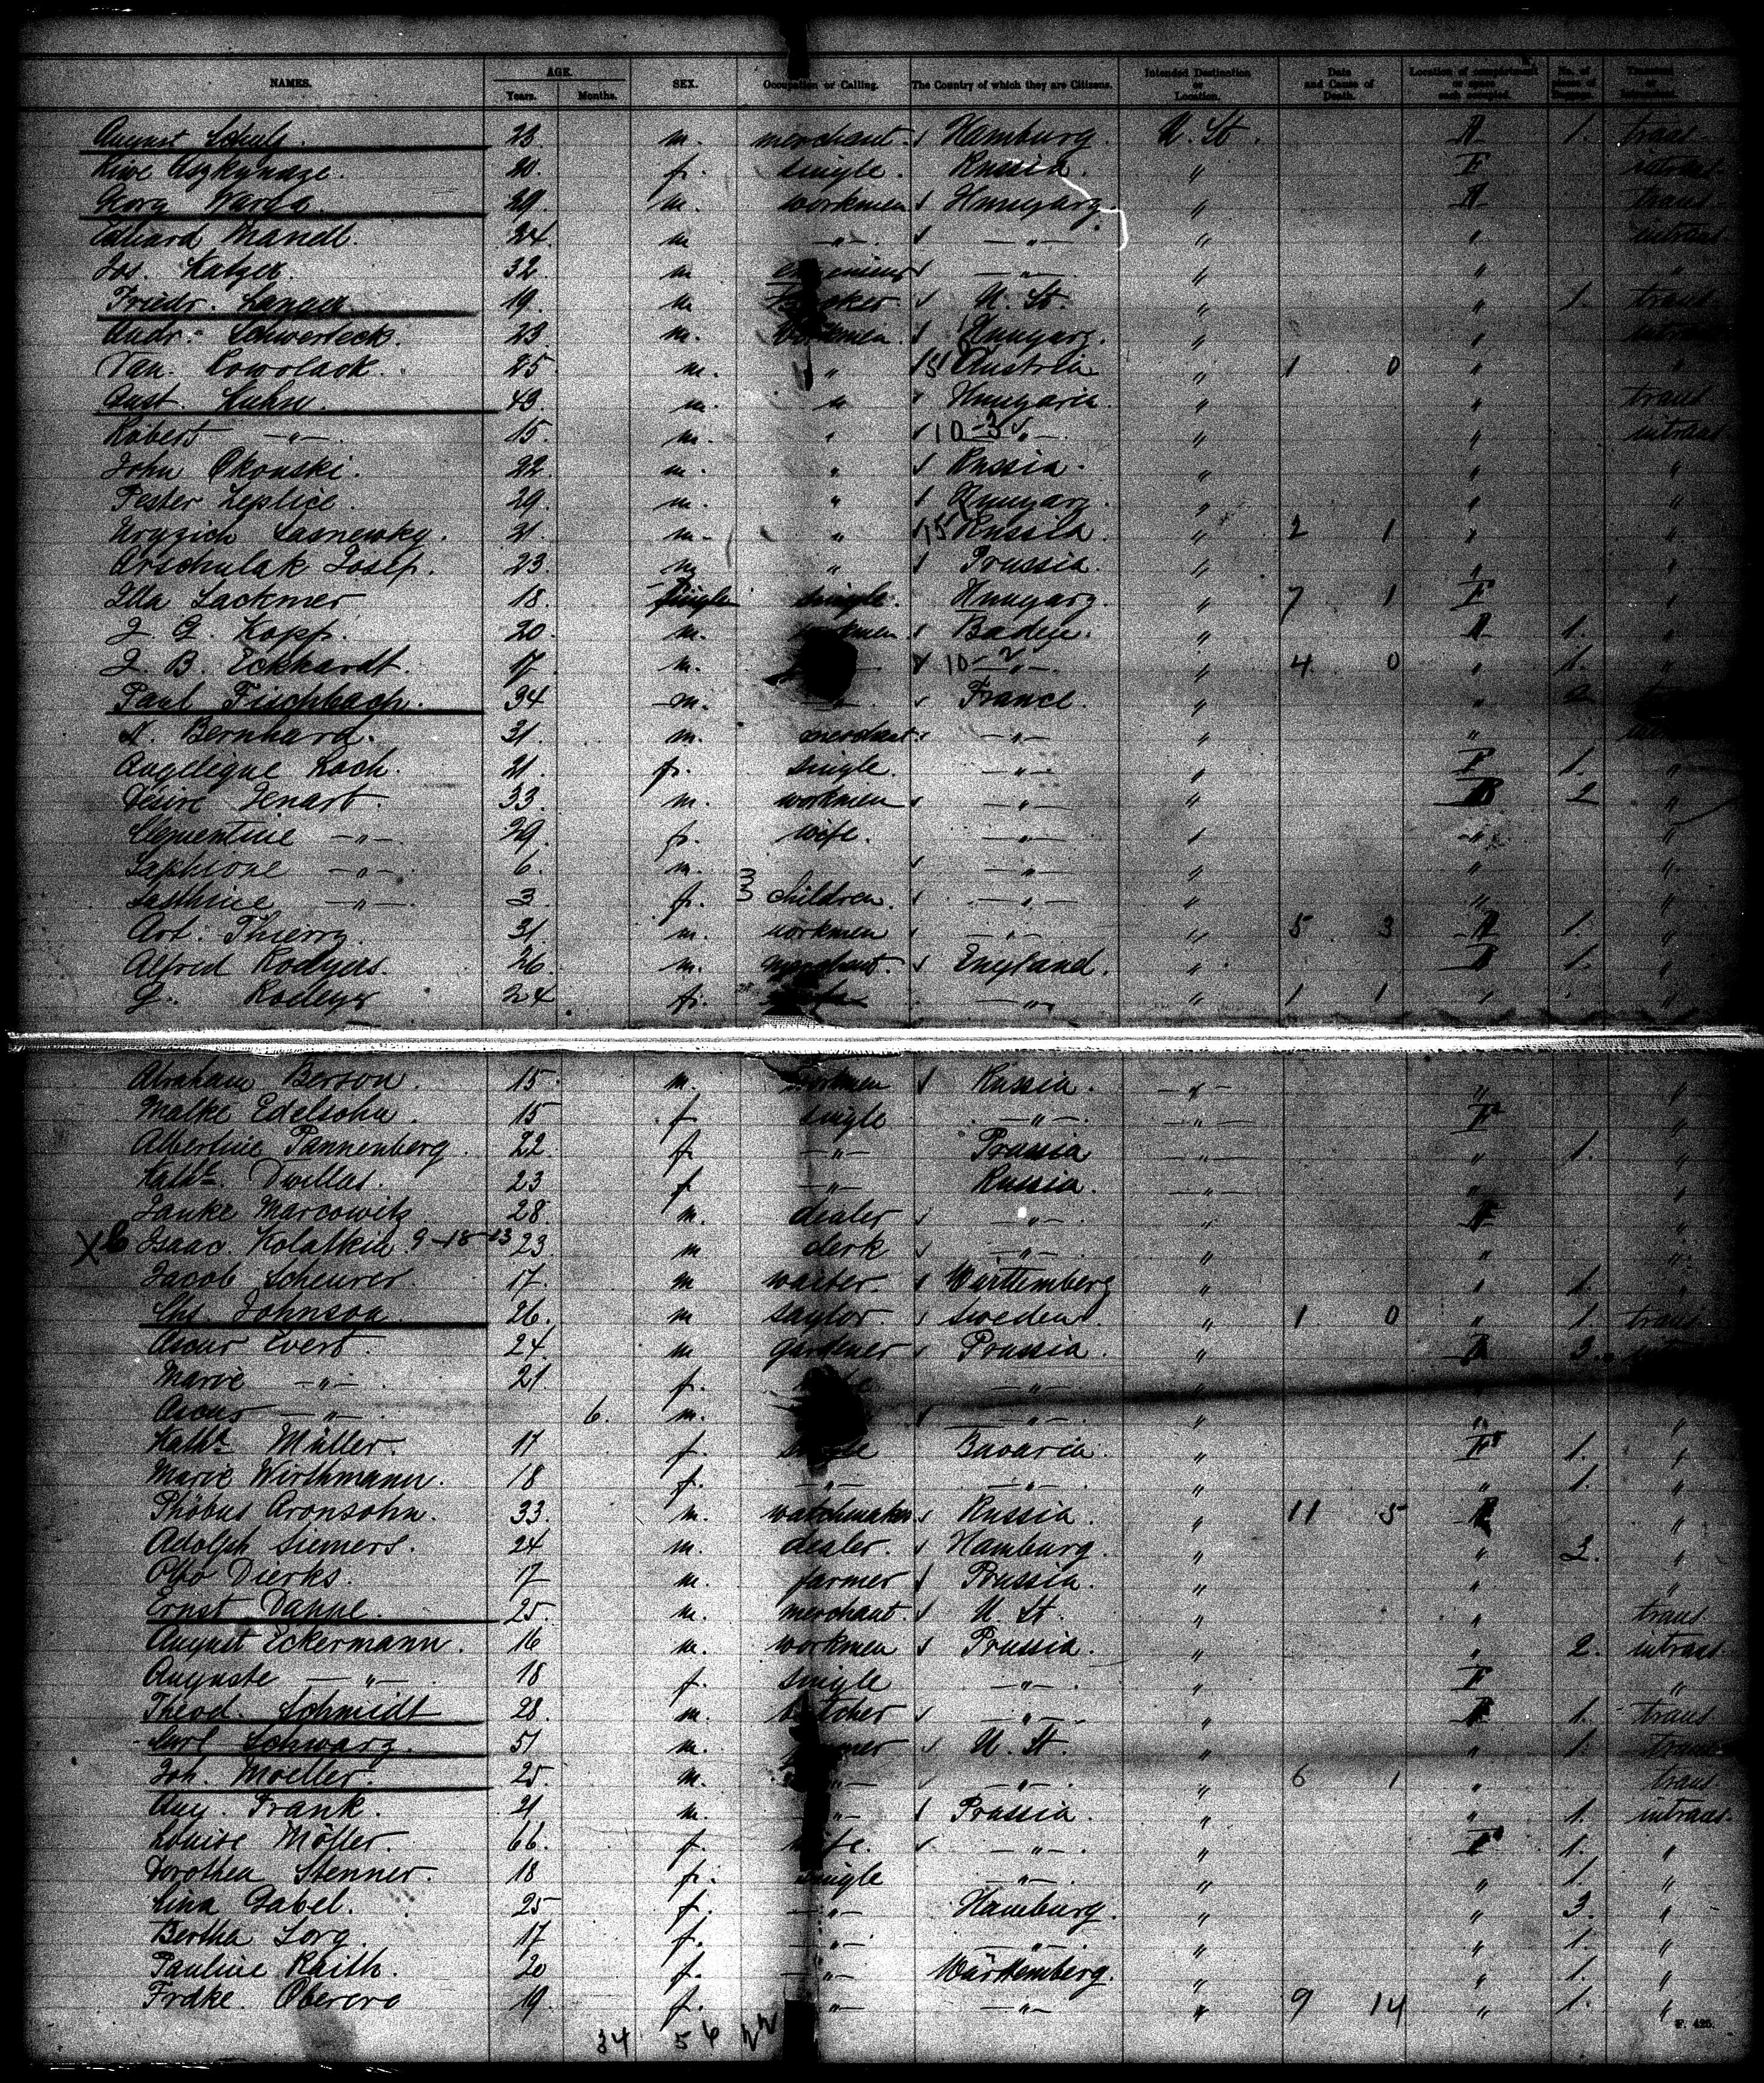 NAMES. AGE. Years. Months. SEX. Occupation or Calling. The Country of which they are Citizens. Intended Destination or Location. Date and Cause of Death. Location of compartment or space each occupied. No. of pieces of Baggage. Transient or
August Schulz 23. m. merchant. Hamburg. U. St. 1. trans.
20. f. single. Russia. " F intrans.
Georg Varga. 29. m. workmen Hungary. " trans
Eduard Mandl. 24. m —"—. —"— " " intrans.
Jos. Katzer. 32. m —"— " " "
Friedr. Langer. 19. m. U. St. " " 1. trans
Andr. Schwerteck. 23. m. workmen. Hungary. " " intrans
Kowolack. 25. m. " 15 Austria " 1 0 " "
Aust. Kuhn. 43. m. " Hungaria. " " trans
Robert —"—. 15. m. " 10-3 " " " intrans.
John Okonski. 22. m. " Russia. " " "
Pester Zeplice. 29. m. " Hungary. " " "
Lasnewsky. 21. m. " 15 Russia. " 2 1 " "
Arschulak Josef. 23. m " Prussia. " " "
Ella Lackmer 18. single single. Hungary. " 7 1 F "
J. G. Kopp. 20. m. workmen Baden. " 1. "
J. B. Eckhardt. 17. m. 10-2 —"—. " 4 0 " 1. "
Paul Fischbach. 34 m. France. " " 2
N. Bernhard. 31. m. merchant. —"— " "
Angelique Koch. 21. f. single. —"— " F 1. "
Désiré Lenart. 33. m. workmen —"— " 2 "
Clementine —"—. 29. f. wife. —"— " " "
—"— 6. m. —"— " " "
—"—. 3 f. 3 3 children. —"— " " "
Art. Thierry. 31. m. workmen —"— " 5 3 1. "
Alfred Rodgers. 26. m. merchant. England. " 1. "
G. 24 f. —"— " 1 1 " "
Abraham Berson. 15. m. workmen Russia. —"— " "
Malke Edelsohn. 15 f single —"—. —"— F "
Albertine Pannenberg. 22. f. —"— Prussia —"— " 1. "
Kathe. Dwillat. 23 f —"— Russia. —"— " "
Janke Marcowitz 28. m. dealer —"—. " "
X Isaac Kolatkin 9-18-13 23. m clerk —"—. " " "
Jacob Scheurer. 17. m waiter. Württemberg " " 1. "
Chs. Johnson. 26. m saylor. Sweden. " 1. 0 " 1. trans
Oscar Evert. 24. m gardener Prussia. " 3.
Marie —"—. 21. f. —"—. "
Oscar —"—. 6. m. —"—. " " "
Kathe Müller. 17 f. single Bavaria. " F 1. "
Marie Wirthmann. 18 f. —"— —"—. " " 1. "
Phöbus Aronsohn. 33. m. watchmaker. Russia. " 11 5 "
Adolph Siemers. 24 m. dealer. Hamburg. " " 2. "
Otto Dierks. 17 m. farmer Prussia. " " "
Ernst Danne. 25. m. merchant. U. St. " " trans
August Eckermann. 16 m. workmen Prussia. " " 2. intrans.
Auguste —"—. 18 f. single —"—. " F "
Theod. Schmidt 28. m. butcher —"—. " 1. trans
Carl Schwarz. 51 m. U. St. " " 1. trans
Joh. Moeller. 25. m. —"— —"—. " 6 1 " trans
Aug. Frank. 21 m. —"— Prussia. " " 1. intrans.
Louise Möller. 66. f. wife. —"—. " F 1. "
Dorothea Stenner. 18 f. single —"—. " " 1. "
Lina Gabel. 25 f. —"— Hamburg. " " 3. "
Bertha Lorg. 17 f. —"— —"—. " " 1. "
Pauline Raith. 20 f. —"— Württemberg. " " 1. "
Frdke. 19. f. —"— —"— " 9 14 " 1. "
34 56 22
F. 425.